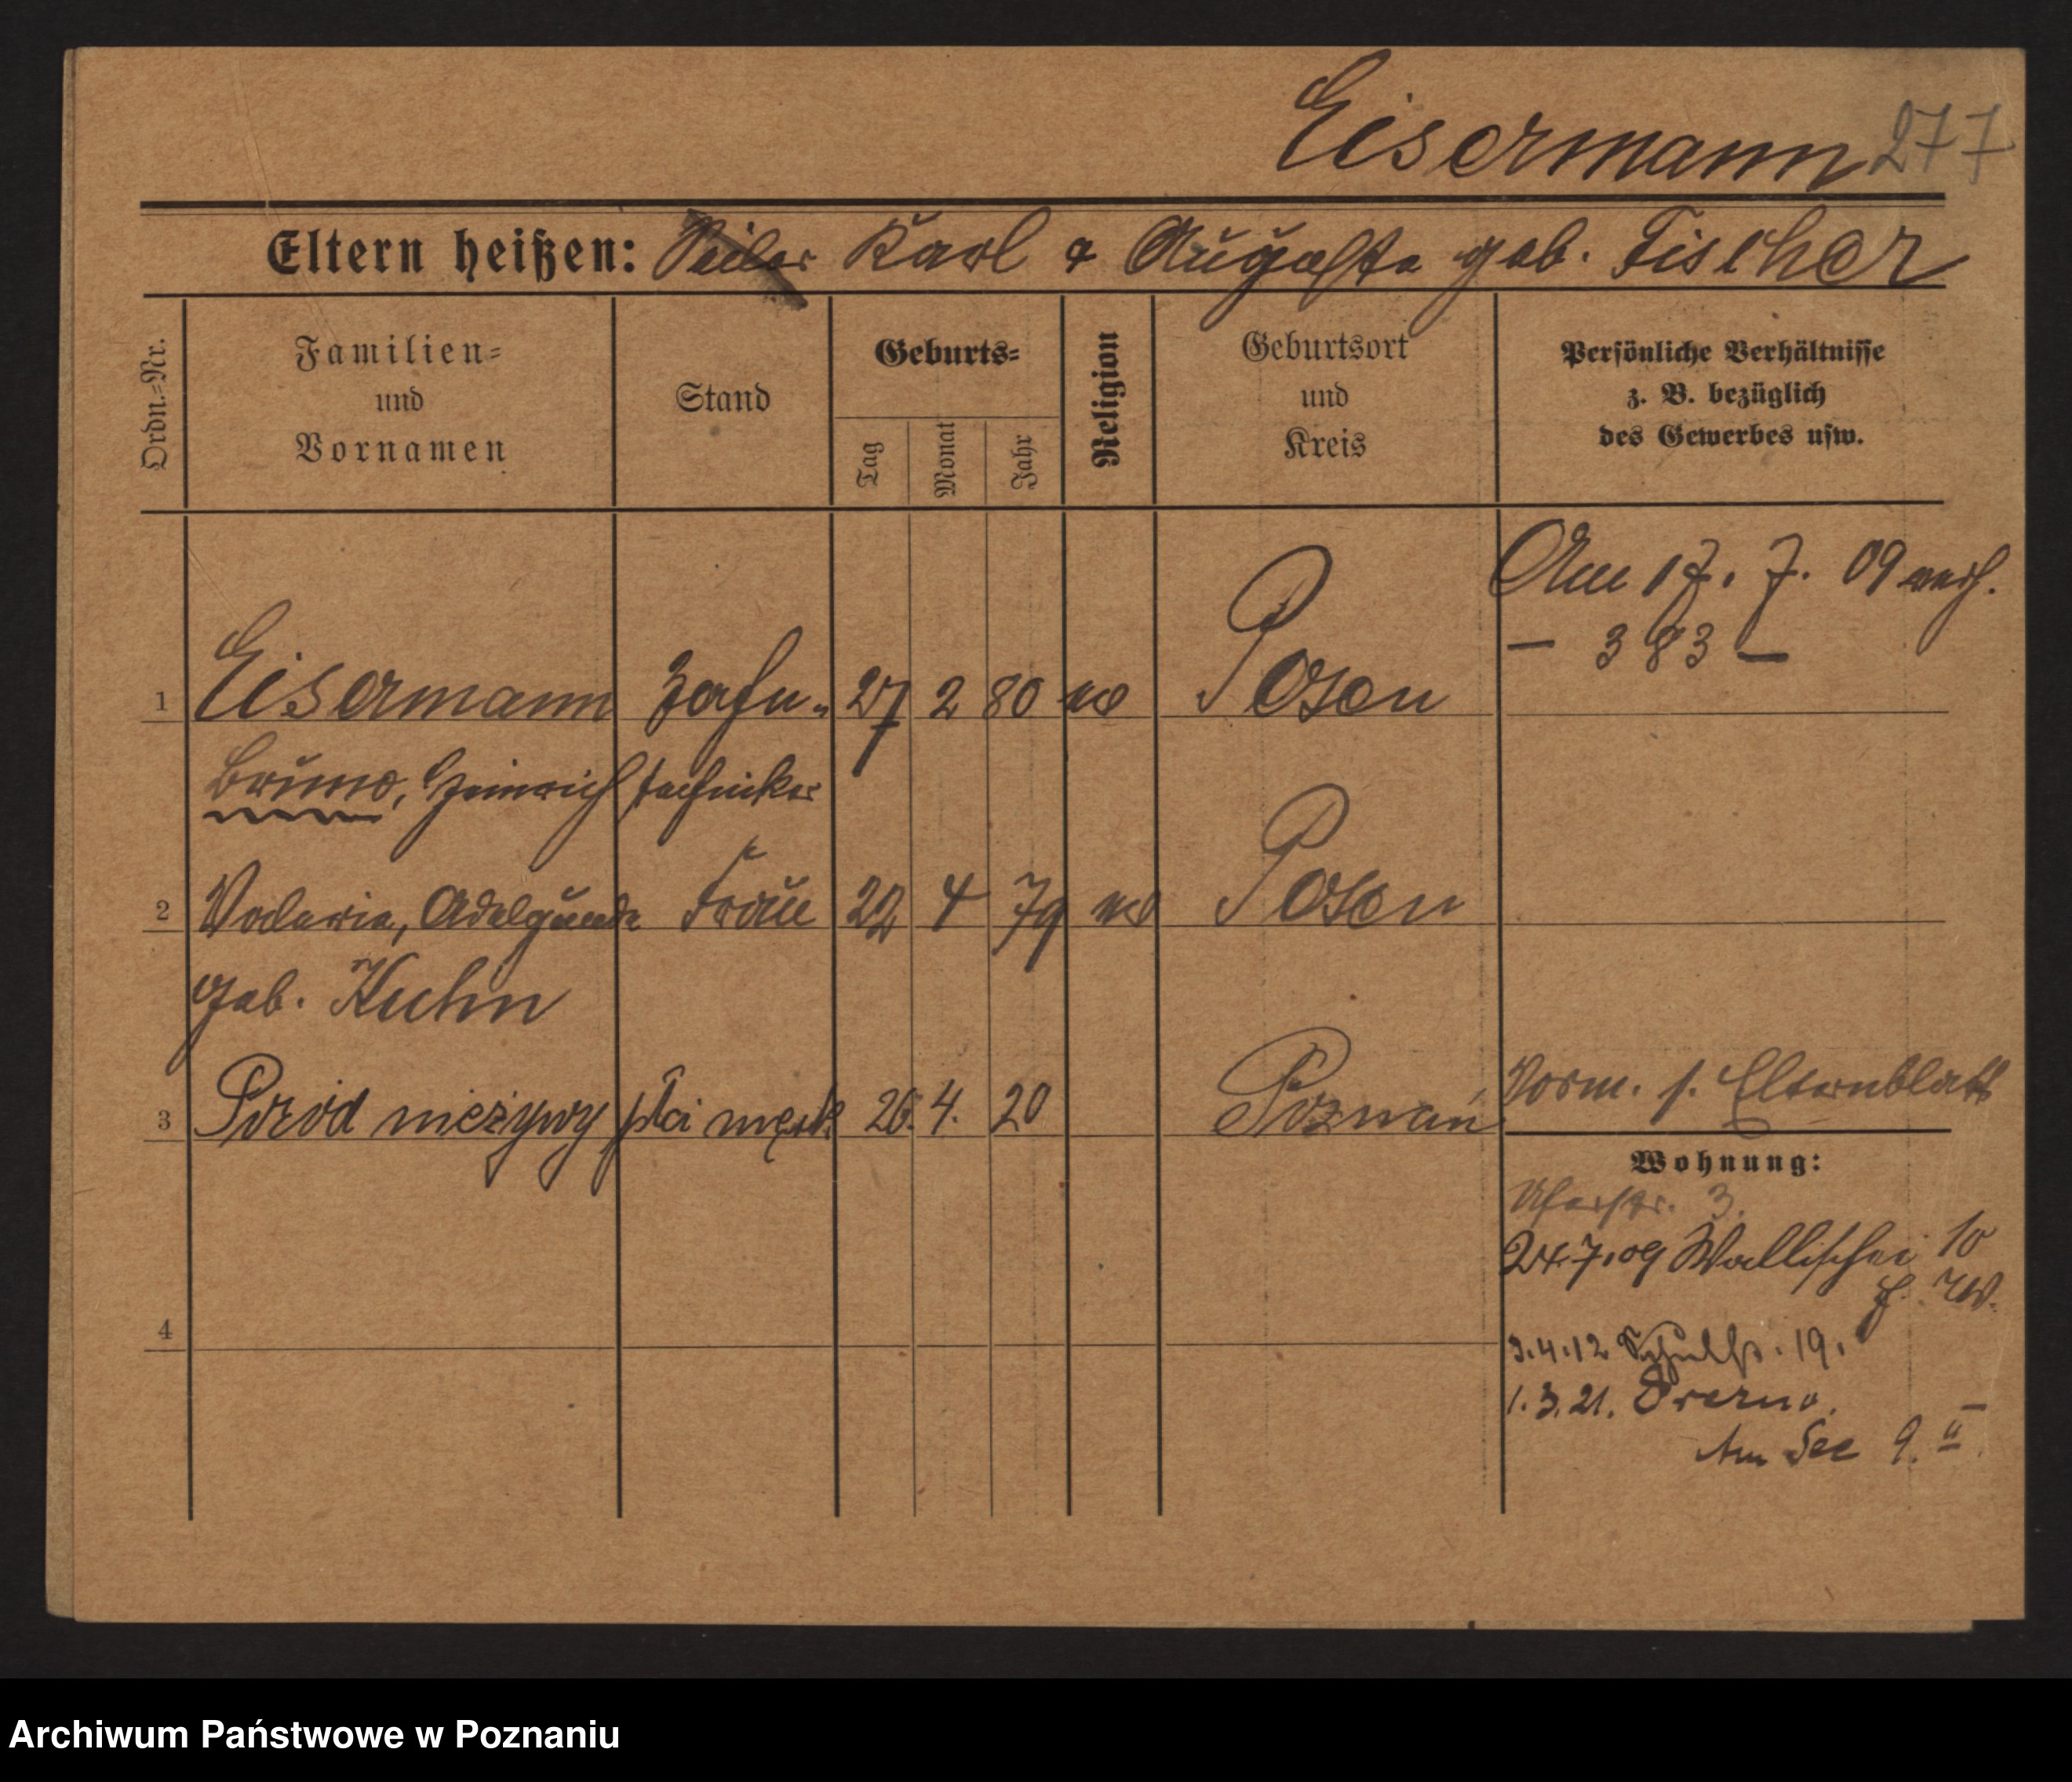 Eisermann 277
Eltern heißen: Karl & Auguste geb. Fischer
Ordn.=Nr.
Familien=
und
Vornamen
Stand
Geburts=
Tag
Monat
Jahr
Religion
Geburtsort
und
Kreis
Persönliche Verhältnisse
z. B. bezüglich
des Gewerbes usw.
Am 17. 7. 09 verh.
— 383 —
1 Eisermann Zahn- 27 2 80 Posen
Bruno, Heinrich techniker
2 Valeria, Adelgunde Frau 22 4 79 Posen
geb. Kuhn
3 Poród nieżywy płci męsk 26. 4. 20 Poznań
Vorm. s. Elternblatt
Wohnung:
Uferstr. 3.
24.7.09 Wallischei 10
4
3.4.12 Schulstr. 19.
1.3.21.
Am See 9. II
Archiwum Państwowe w Poznaniu